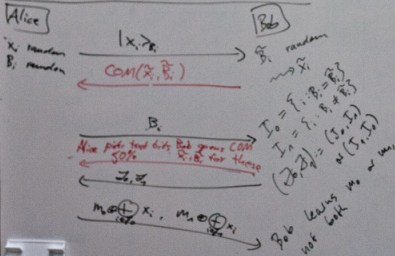 Alice
Bob
x_i random
B_i random
|x_i>_{B_i}
B̃_i random
⟿ x̃_i
COM(x̃_i, B̃_i)
B_i
I_0 = {i : B_i = B̃_i}
I_1 = {i : B_i ≠ B̃_i}
Alice picks test bits Bob opens COM
50% x̃_i, B̃_i for these
(J_0, J_1) := (I_0, I_1)
or (I_1, I_0)
J_0, J_1
m_0 ⊕ ⊕ x_i , m_1 ⊕ ⊕ x_i
Bob learns m_0 or m_1
not both